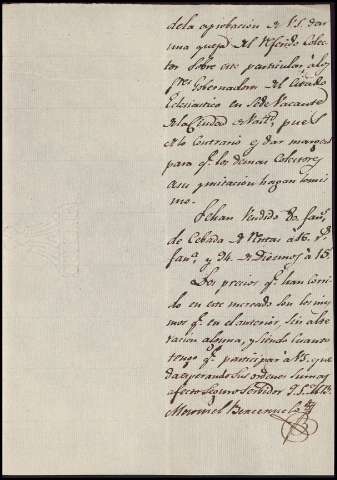 dela aprobacion de V.S. dar
una queja del referido Colec-
tor sobre este particular à los
Sres Gobernadores del Cavildo
Eclesiastico en Sede Vacante
de la Ciudad de pues
de lo contrario es dar margen
para qe. los demas Colectores
asu ymitacion hagan lo mis-
mo.
Se han vendido 80. fans.
de Cebada de Rentas à 16. rs.
fana. y 94. de Diezmos à 15.
Los precios qe. han corri-
do en este mercado son los mis-
mos qe. en el anterior, sin alte-
racion alguna, y siendo cuanto
tengo qe. participar à VS. que-
da esperando sus ordenes su mas
afecto Seguro Servidor Q.S.M.B.
Manuel